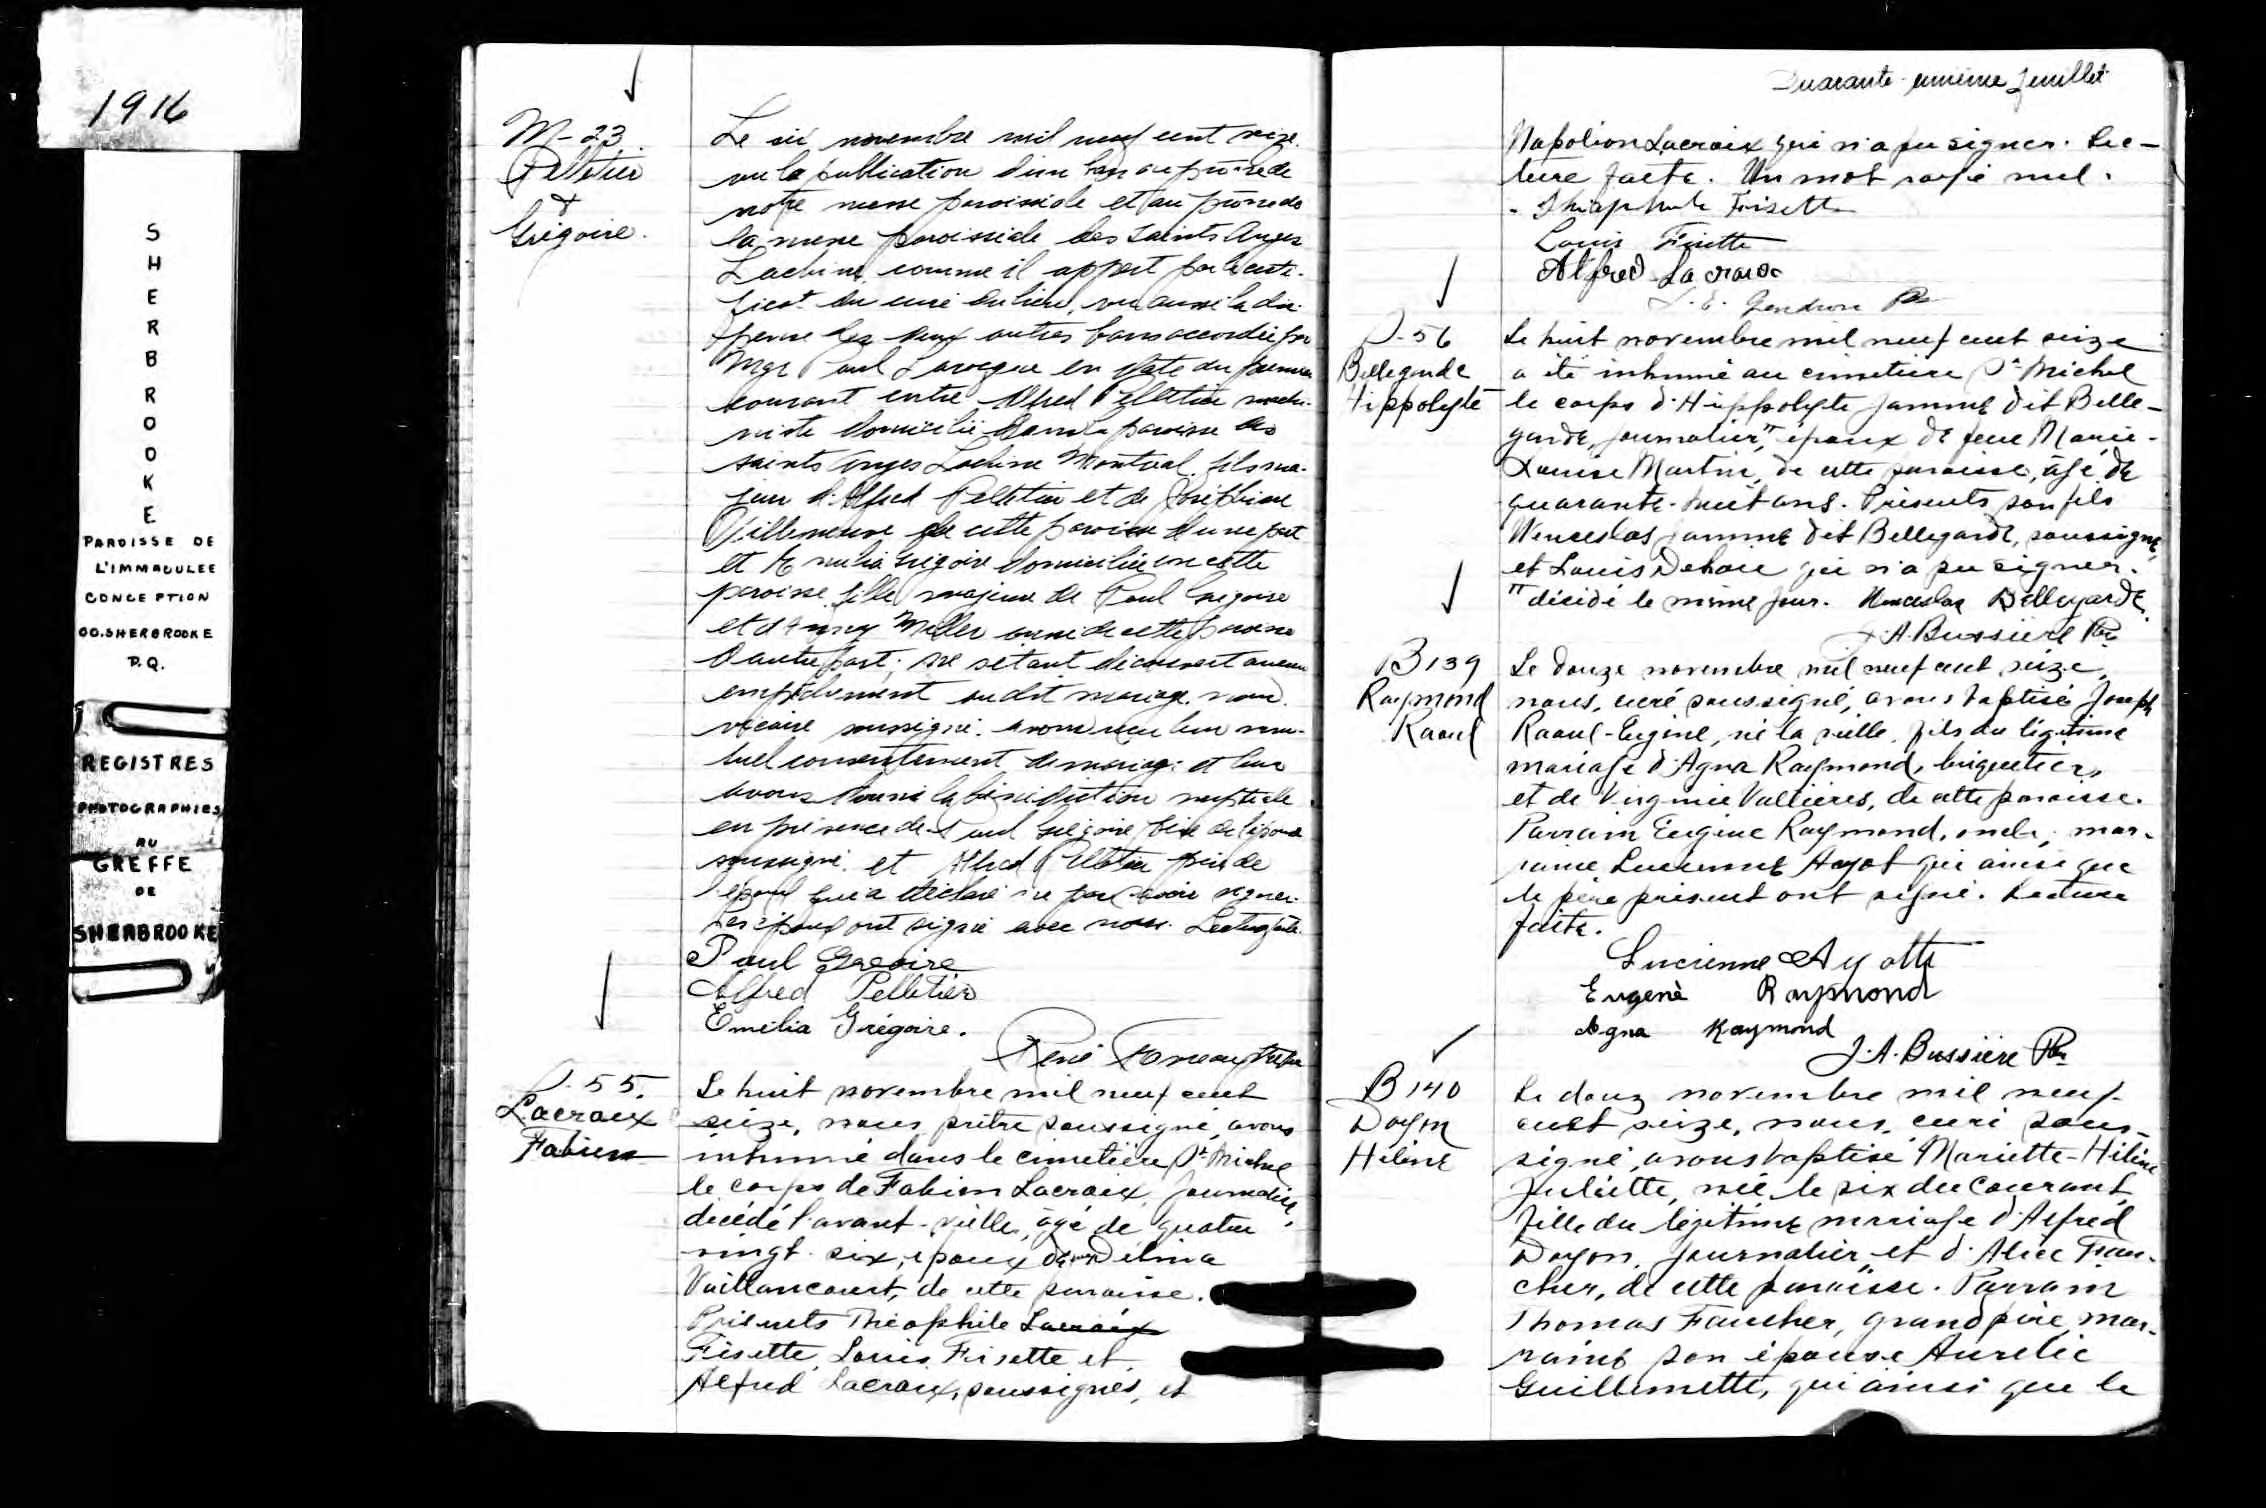 1916
SHERBROOKE
PAROISSE DE
L'IMMACULEE
CONCEPTION
CO. SHERBROOKE
P.Q.
REGISTRES
PHOTOGRAPHIES
AU
GREFFE
DE
SHERBROOKE
M-23.
Pelletier
&
Grégoire.
Le six novembre mil neuf cent seize.
vu la publication d'un ban au prône de
notre messe paroissiale et au prône de
la messe paroissiale des Saints Anges
Lachine comme il appert par le certi-
ficat du curé du lieu, vu aussi la dis-
pense des deux autres bans accordée par
Mgr Paul Larocque en date du premier
courant entre Alfred Pelletier machi-
niste domicilié dans la paroisse des
saints Anges Lachine Montréal, fils ma-
jeur d'Alfred Pelletier et de Joséphine
Villemeure de cette paroisse d'une part
et Emilia Grégoire domiciliée en cette
paroisse fille majeure de Paul Grégoire
et d' Miller aussi de cette paroisse
d'autre part; ne s'étant découvert aucun
empêchement au dit mariage, nous
vicaire soussigné, avons reçu leur mu-
tuel consentement de mariage et leur
avons donné la bénédiction nuptiale
en présence de Paul Grégoire père de l'épouse
soussigné et Alfred Pelletier père de
l'époux qui a déclaré ne pas savoir signer.
Les époux ont signé avec nous. Lecture faite.
Paul Gregoire
Alfred Pelletier
Emélia Grégoire.
René
S. 55.
Lacroix
Fabien
Le huit novembre mil neuf cent
seize, nous prêtre soussigné, avons
inhumé dans le cimetière St Michel
le corps de Fabien Lacroix, journalier,
décédé l'avant-veille, âgé de quatre
vingt-six, époux de Délina
Vaillancourt, de cette paroisse.
Présents Théophile Lacroix
Frisette, Louis Frisette et
Alfred Lacroix, soussignés, et
Quarante-unième feuillet
Napoléon Lacroix qui n'a pu signer. Lec-
ture faite. Un mot rayé nul.
Théophile Frisette
Louis Frisette
Alfred Lacroix
J. E. Gendron Ptr
S-56
Bellegarde
Hippolyte
Le huit novembre mil neuf cent seize
a été inhumé au cimetière St Michel
le corps d'Hippolyte Jamme dit Belle-
garde, journalier," époux de feue Marie-
Louise Martin, de cette paroisse, âgé de
quarante-huit ans. Présents son fils
Wenceslas Jamme dit Bellegarde, soussigné,
et Louis Dehaie qui n'a pu signer.
" décédé le même jour. Wenceslas Bellegarde
J. A. Bussière Ptr
B139
Raymond
Raoul
Le douze novembre mil neuf cent seize,
nous, curé soussigné, avons baptisé Joseph
Raoul-Eugène, né la veille, fils du légitime
mariage d'Agna Raymond, briquetier,
et de Virginie Vallières, de cette paroisse.
Parrain Eugène Raymond, oncle, mar-
raine Lucienne Ayot qui ainsi que
le père présent ont signé. Lecture
faite.
Lucienne Ayotte
Eugenè Raymond
Agna Raymond
J. A. Bussière Ptr
B 140
Doyon
Hélène
Le douz novembre mil neuf
cent seize, nous, curé sous-
signé, avons baptisé Mariette-Hélène
Juliette, née le six du courant,
fille du légitime mariage d'Alfred
Doyon, journalier, et d'Alice Fau-
cher, de cette paroisse. Parrain
Thomas Faucher, grand père, mar-
raine son épouse Aurélie
Guillemette, qui ainsi que le